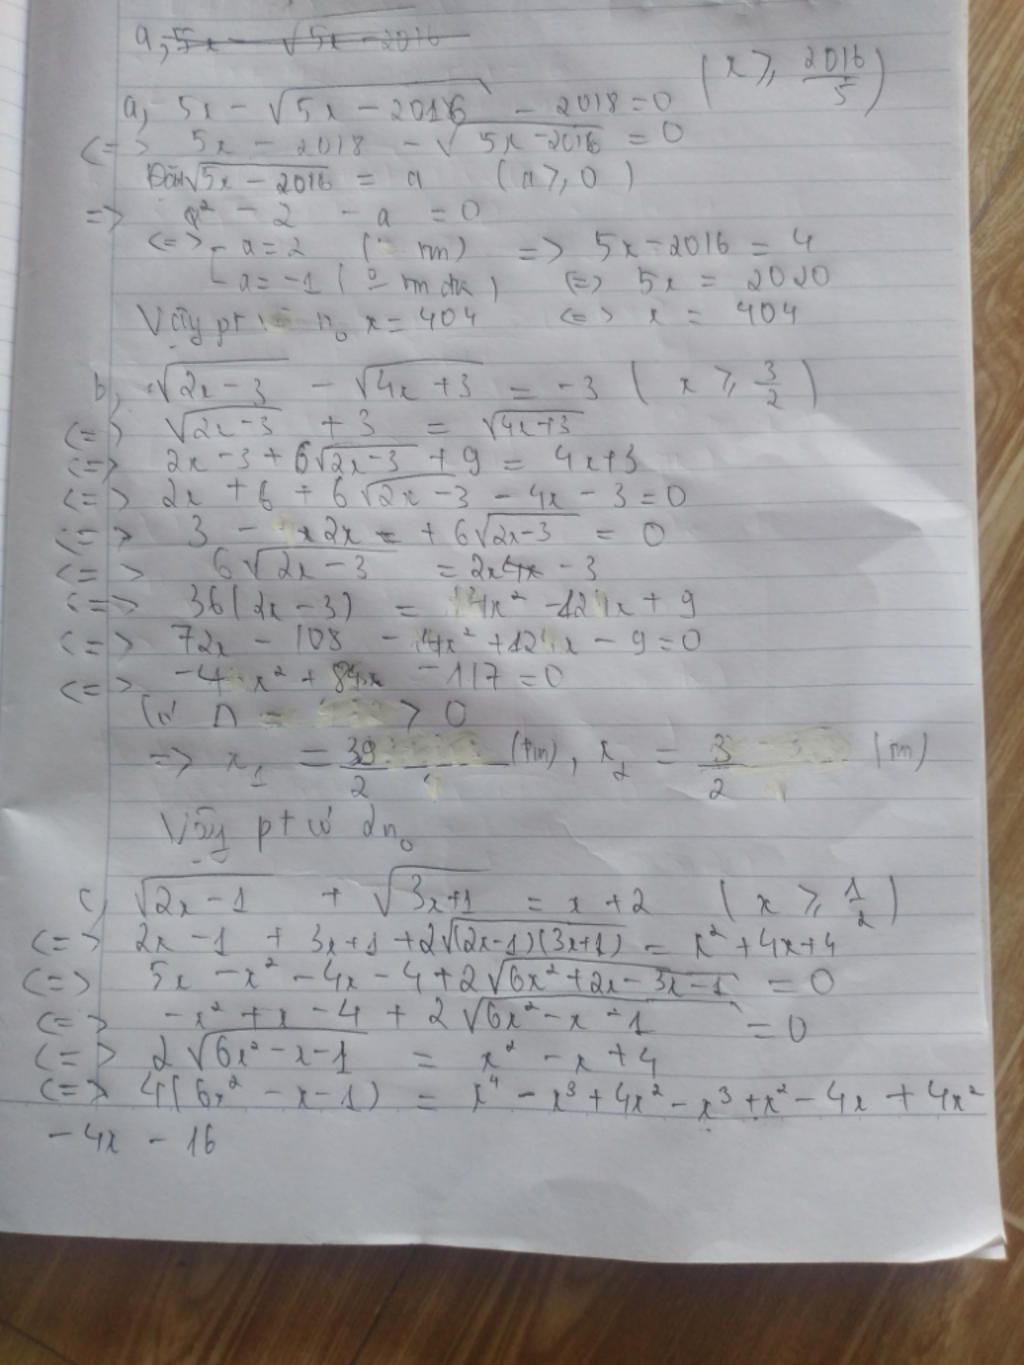 a, 5x - √(5x - 2016)
a, 5x - √(5x - 2016) - 2018 = 0 (x ≥ 2016/5)
<=> 5x - 2018 - √(5x - 2016) = 0
Đặt √(5x - 2016) = a (a ≥ 0)
=> a² - 2 - a = 0
<=> [ a = 2 (tm) => 5x - 2016 = 4
a = -1 (0 tmđk) <=> 5x = 2020
Vậy pt n₀ x = 404 <=> x = 404
b, √(2x - 3) - √(4x + 3) = -3 (x ≥ 3/2)
<=> √(2x - 3) + 3 = √(4x + 3)
<=> 2x - 3 + 6√(2x - 3) + 9 = 4x + 3
<=> 2x + 6 + 6√(2x - 3) - 4x - 3 = 0
<=> 3 - 2x + 6√(2x - 3) = 0
<=> 6√(2x - 3) = 2x - 3
<=> 36(2x - 3) = 4x² - 12x + 9
<=> 72x - 108 - 4x² + 12x - 9 = 0
<=> -4x² + 84x - 117 = 0
Có Δ = > 0
=> x₁ = 39/2 (tm), x₂ = 3/2 (tm)
Vậy pt có 2n₀
c, √(2x - 1) + √(3x + 1) = x + 2 (x ≥ 1/2)
<=> 2x - 1 + 3x + 1 + 2√((2x - 1)(3x + 1)) = x² + 4x + 4
<=> 5x - x² - 4x - 4 + 2√(6x² + 2x - 3x - 1) = 0
<=> -x² + x - 4 + 2√(6x² - x - 1) = 0
<=> 2√(6x² - x - 1) = x² - x + 4
<=> 4(6x² - x - 1) = x⁴ - x³ + 4x² - x³ + x² - 4x + 4x²
- 4x - 16